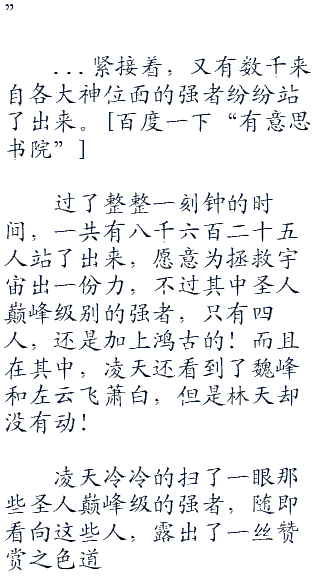 ”
...紧接着，又有数千来
自各大神位面的强者纷纷站
了出来。[百度一下“有意思
书院”]
过了整整一刻钟的时
间，一共有八千六百二十五
人站了出来，愿意为拯救宇
宙出一份力，不过其中圣人
巅峰级别的强者，只有四
人，还是加上鸿古的！而且
在其中，凌天还看到了魏峰
和左云飞萧白，但是林天却
没有动！
凌天冷冷的扫了一眼那
些圣人巅峰级的强者，随即
看向这些人，露出了一丝赞
赏之色道